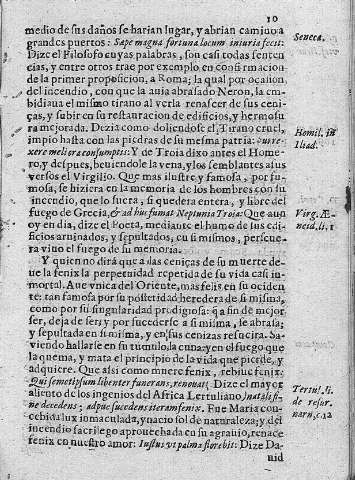 10
medio de sus daños se harian lugar, y abrian camino a
grandes puertos: Sæpe magna fortuna locum iniuria fecit:
Seneca.
Dize el Filosofo cuyas palabras, son casi todas senten
cias, y entre otros trae por exemplo en confirmacion
de la primer proposicion, a Roma; la qual por ocasion
del incendio, con que la auia abrasado Neron, la em-
bidiana el mismo tirano al verla renascer de sus ceni-
ças, y subir en su restauracion de edificios, y hermosu
ra mejorada. Dezia como doliendose el, Tirano cruel,
impio hasta con las piedras de su mesma patria:
Homil. in
Iliad.
xere meliora consumptis: Y de Troia dixo antes el Home-
ro, y despues, beuiendole la vena, y los semblantes a sus
versos el Virgilio. Que mas ilustre y famosa, por fu-
mosa, se hiziera en la memoria de los hombres con su
incendio, que lo fuera, si quedera entera, y libre del
fuego de Grecia, & ad huc fumat Neptunia Troia: Que aun
Virg. Æ-
neid. li. 1
oy en dia, dize el Poeta, mediante el humo de sus edi
ficios arruinados, y sepultados, en si mismos, perseue-
ra viuo el fuego de su memoria.
Y quien no dirà que a las ceniças de su muerte de-
ue la fenix la perpetuidad repetida de su vida casi in-
mortal. Aue vnica del Oriente, mas felis en su ociden
te: tan famosa por su posteridad heredera de si misma,
como por su singularidad prodigiosa: q̃ a fin de mejor
ser, deja de ser; y por sucederse a si misma, se abrasa;
y sepultada en si misma, y en sus cenizas resucita. Sa
viendo hallarse en su tumulo, la cuna: y en el fuego que
la quema, y mata el principio de la vida que pierde, y
adquiere. Que assi como muere fenix, rebiue fenix:
Qui semetipsum libenter funerans, renouat: Dize el mayor
Tertul. li.
de resur.
narn, c. 12
aliento de los ingenios del Africa Tertuliano, natali fi-
ne decedens; atque succedens iterum fenix. Fue Maria con-
cebida lux inmaculada, y nacio sol de naturaleza; y del
incendio sacrilego aprouechada en su agrauio, renace
fenix en nuestro amor: Iustus vt palma florebit: Dize Da-
uid